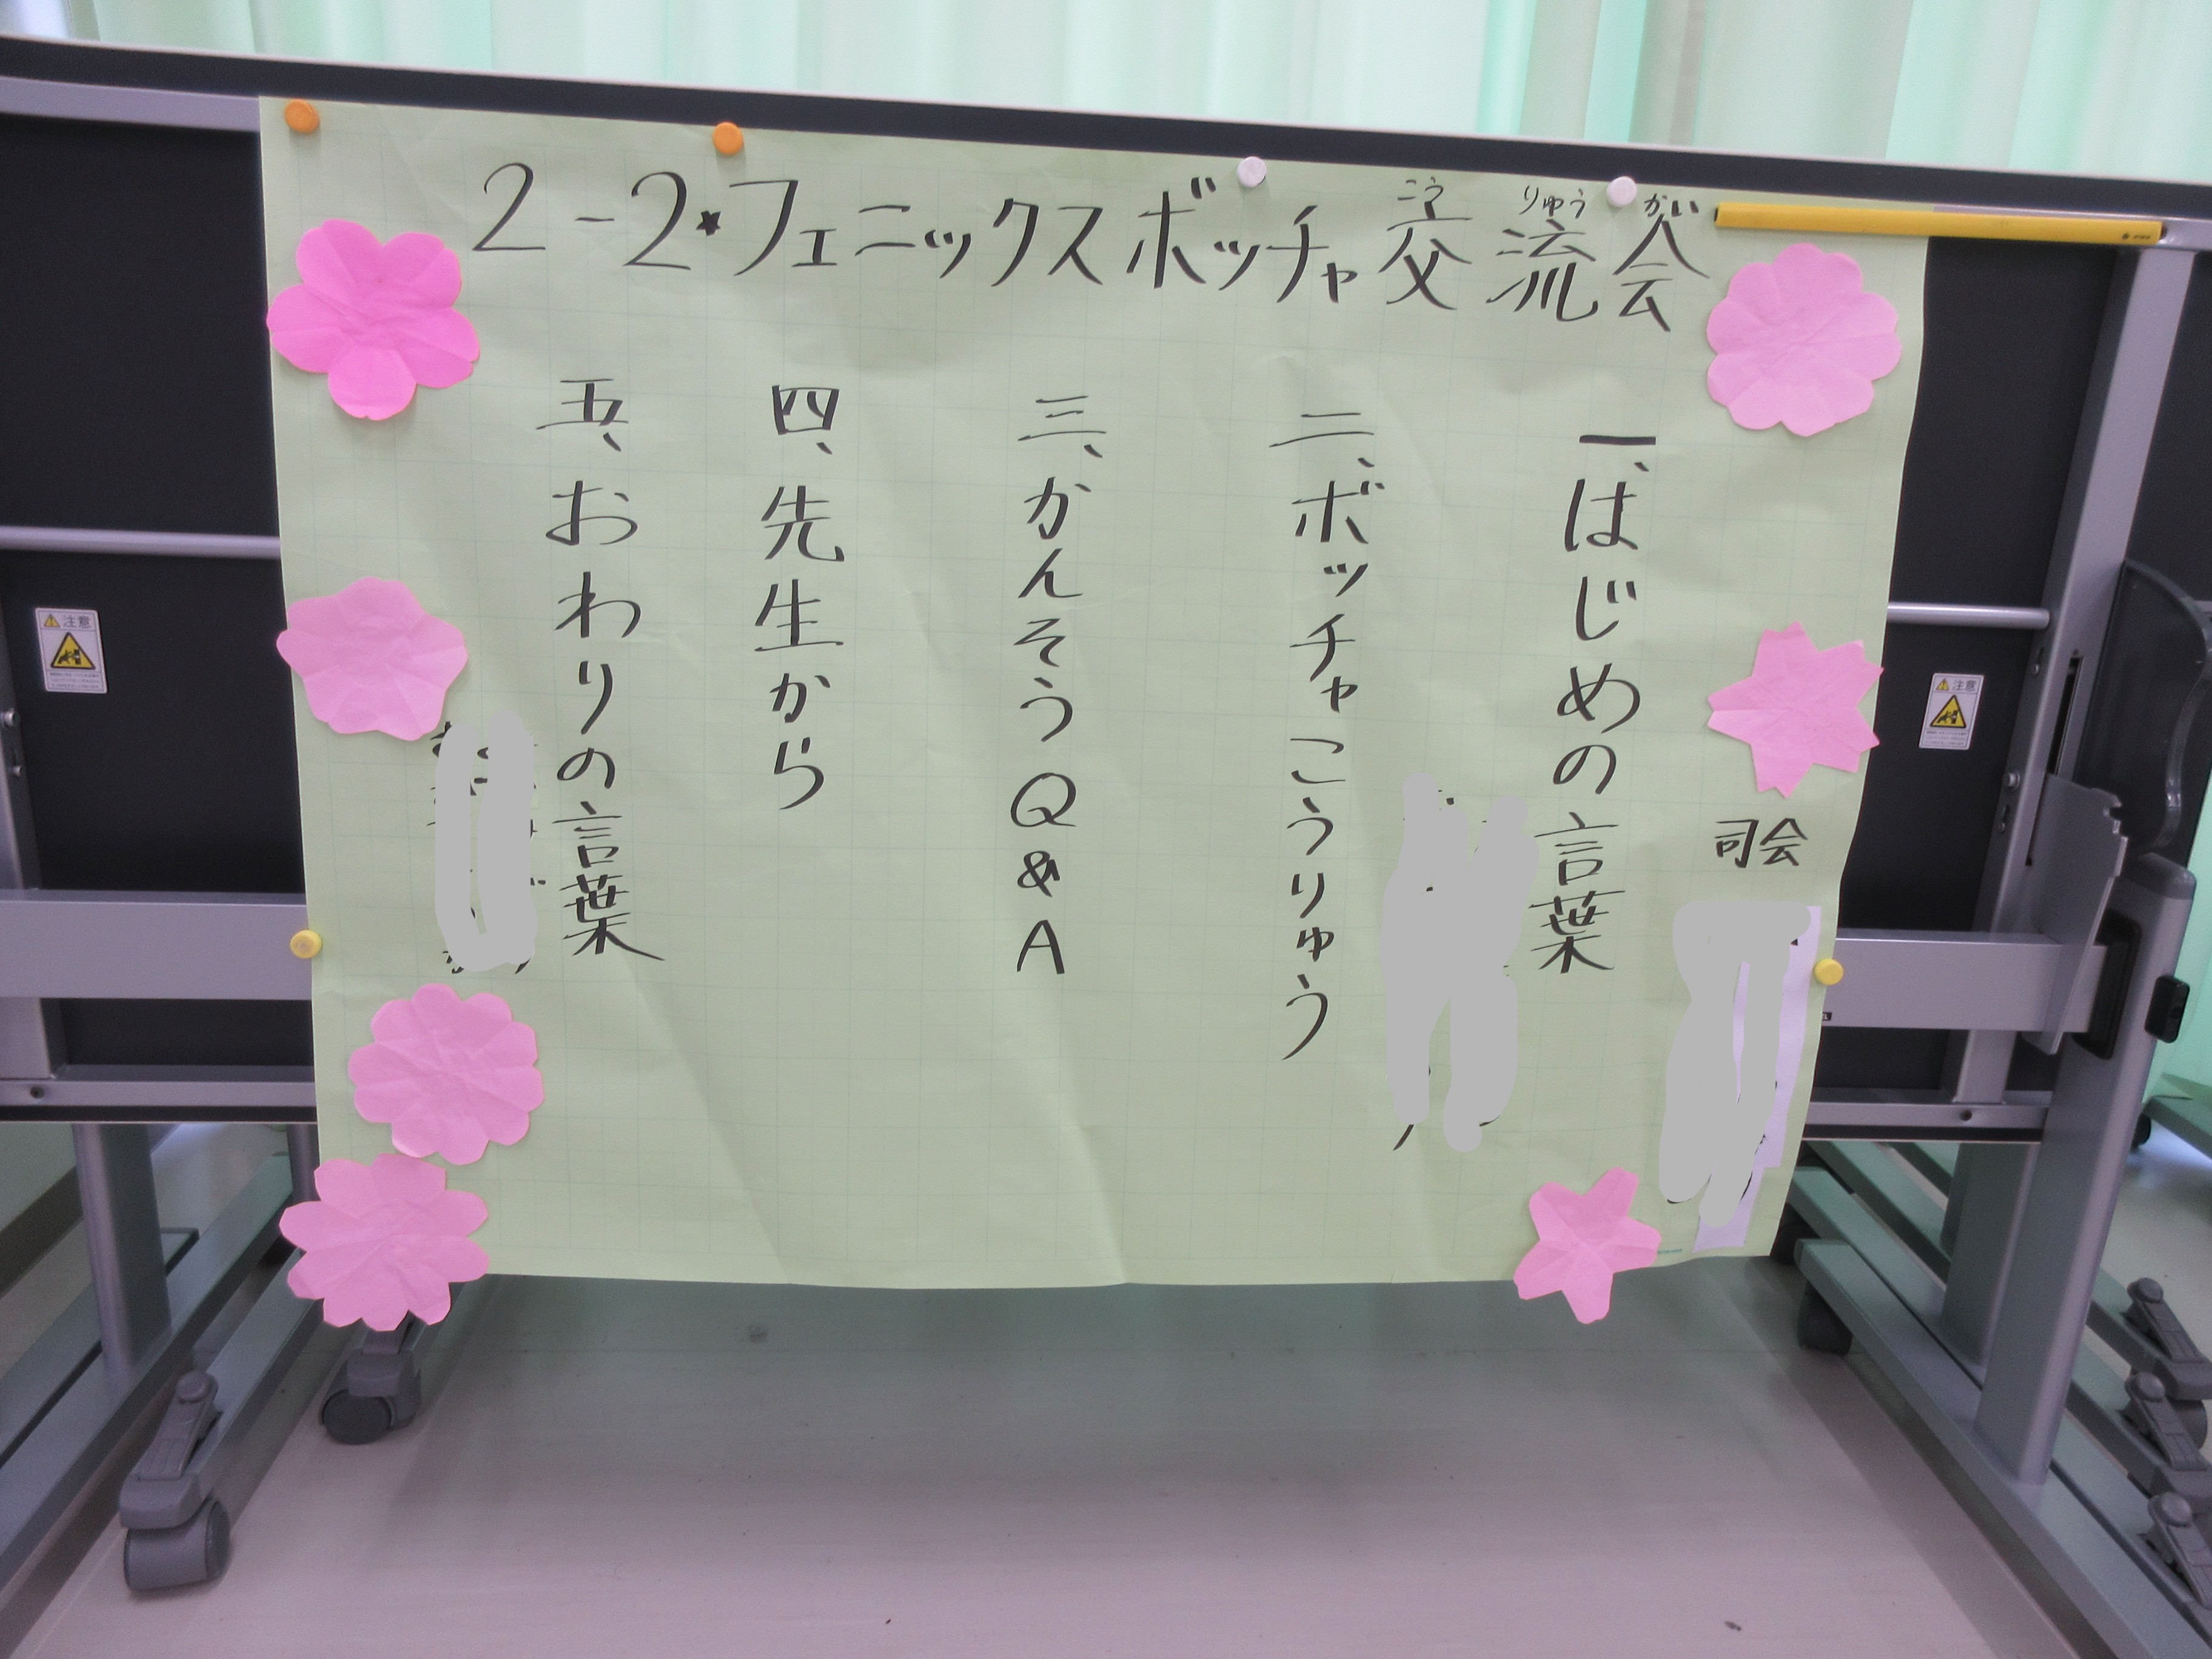 2-2★フェニックスボッチャ交流会
こう りゅう かい
司会
一、はじめの言葉
二、ボッチャこうりゅう
三、かんそうQ&A
四、先生から
五、おわりの言葉
注意
注意